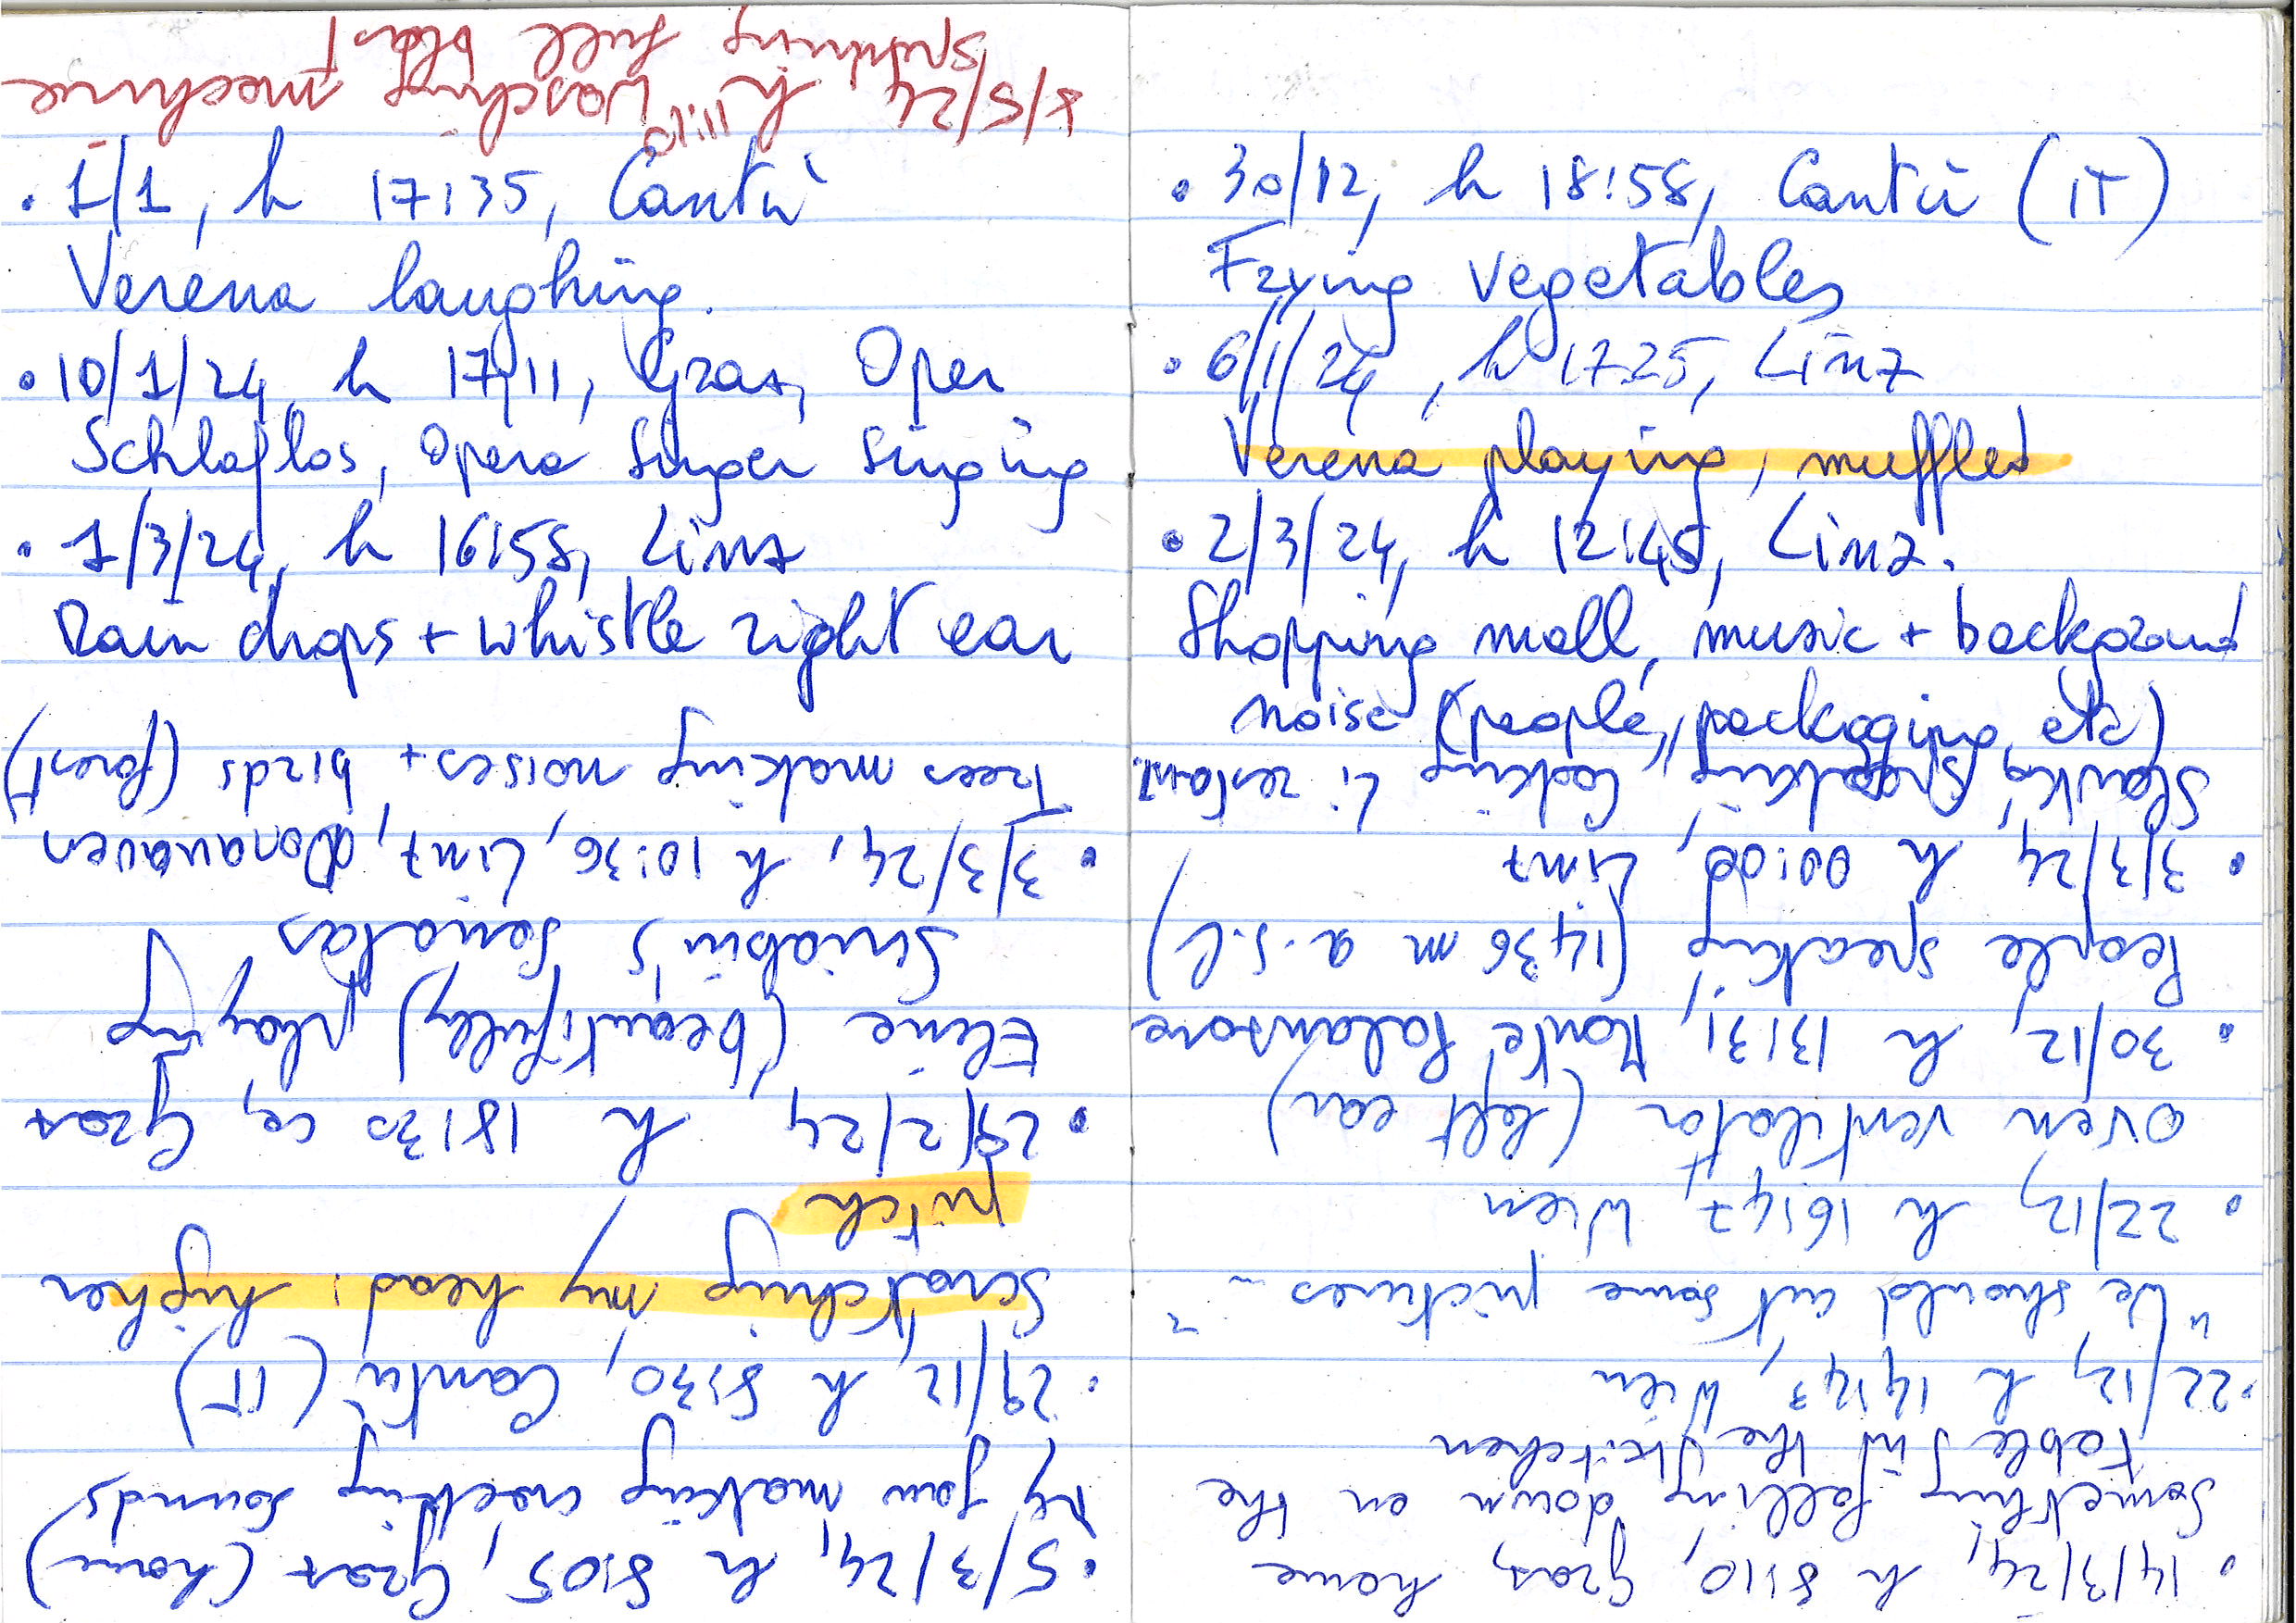 • 1/1, h 17:35, Cantù
Verena laughing.
• 10/1/24, h 17:11, Graz, Oper
Schlaflos, Opera Singer Singing
• 1/3/24, h 16:58, Linz
Rain drops + whistle right ear
• 30/12, h 18:58, Cantù (IT)
Frying vegetables
• 6/1/24, h 17:25, Linz
Verena playing, muffled
• 2/3/24, h 12:45, Linz.
Shopping mall, music + background
noise (people, packaging, etc)
• 14/3/24, h 8:10, Graz, home
Something falling down on the
table in the kitchen
• 22/12, h 14:24, Wien
"We should cut some pictures"
• 22/12, h 16:47, Wien
Oven ventilator (left ear)
• 30/12, h 13:31, Monte Palanzone
People speaking (1436 m a.s.l.)
• 3/3/24 h 00:00, Linz
speaking, cooking
• 5/3/24, h 8:05, Graz (home)
My jaw making cracking sounds
• 29/12, h 8:30, Cantù (IT)
Scratching my head: higher
pitch
• 29/2/24, h 18:30 ca, Graz
Eline (beautifully) playing
Scriabin's Sonatas
• 3/3/24, h 10:36, Linz, Donauauen
Trees making noises + birds (forest)
8/5/24, h 11:10 Wasching mochine
spinning full blast